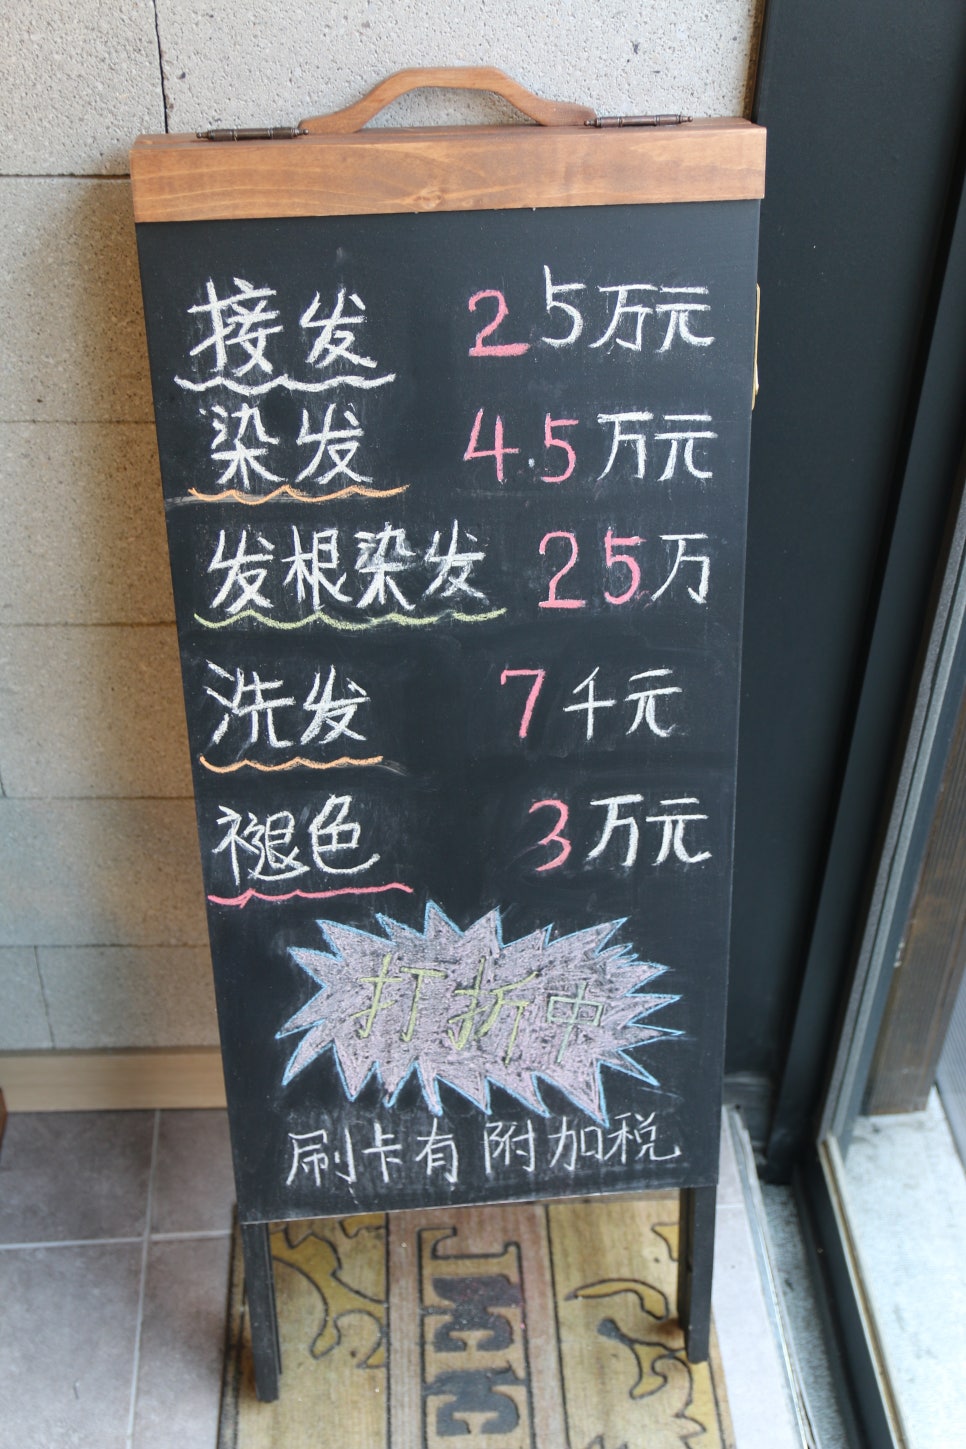 接发 25万元
染发 4.5万元
发根染发 25万
洗发 7千元
褪色 3万元
打折中
刷卡有附加税